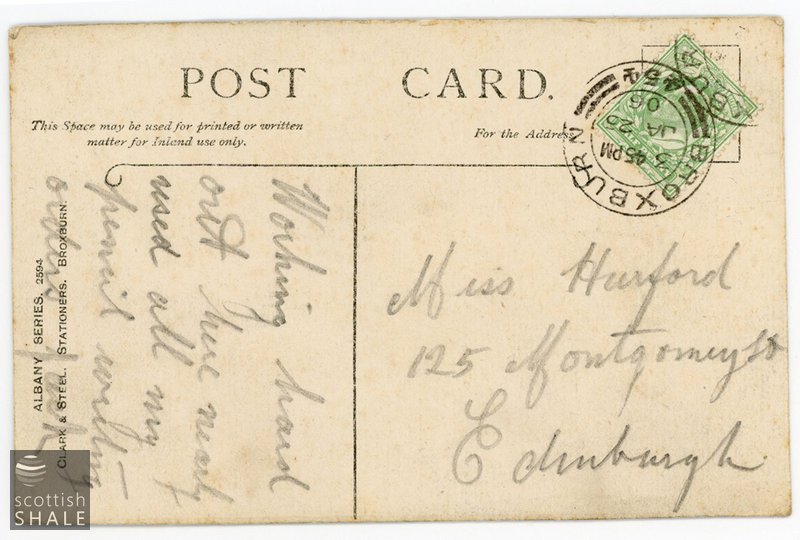 POST CARD.
This Space may be used for printed or written
matter for Inland use only.
For the Address
BROXBURN
3 45 PM
JA 25
06
Working hard
out here nearly
used all my
pencil writing
orders
Miss Hurford
125 Montgomery St
Edinburgh
ALBANY SERIES. 2594
CLARK & STEEL. STATIONERS. BROXBURN.
scottish
SHALE